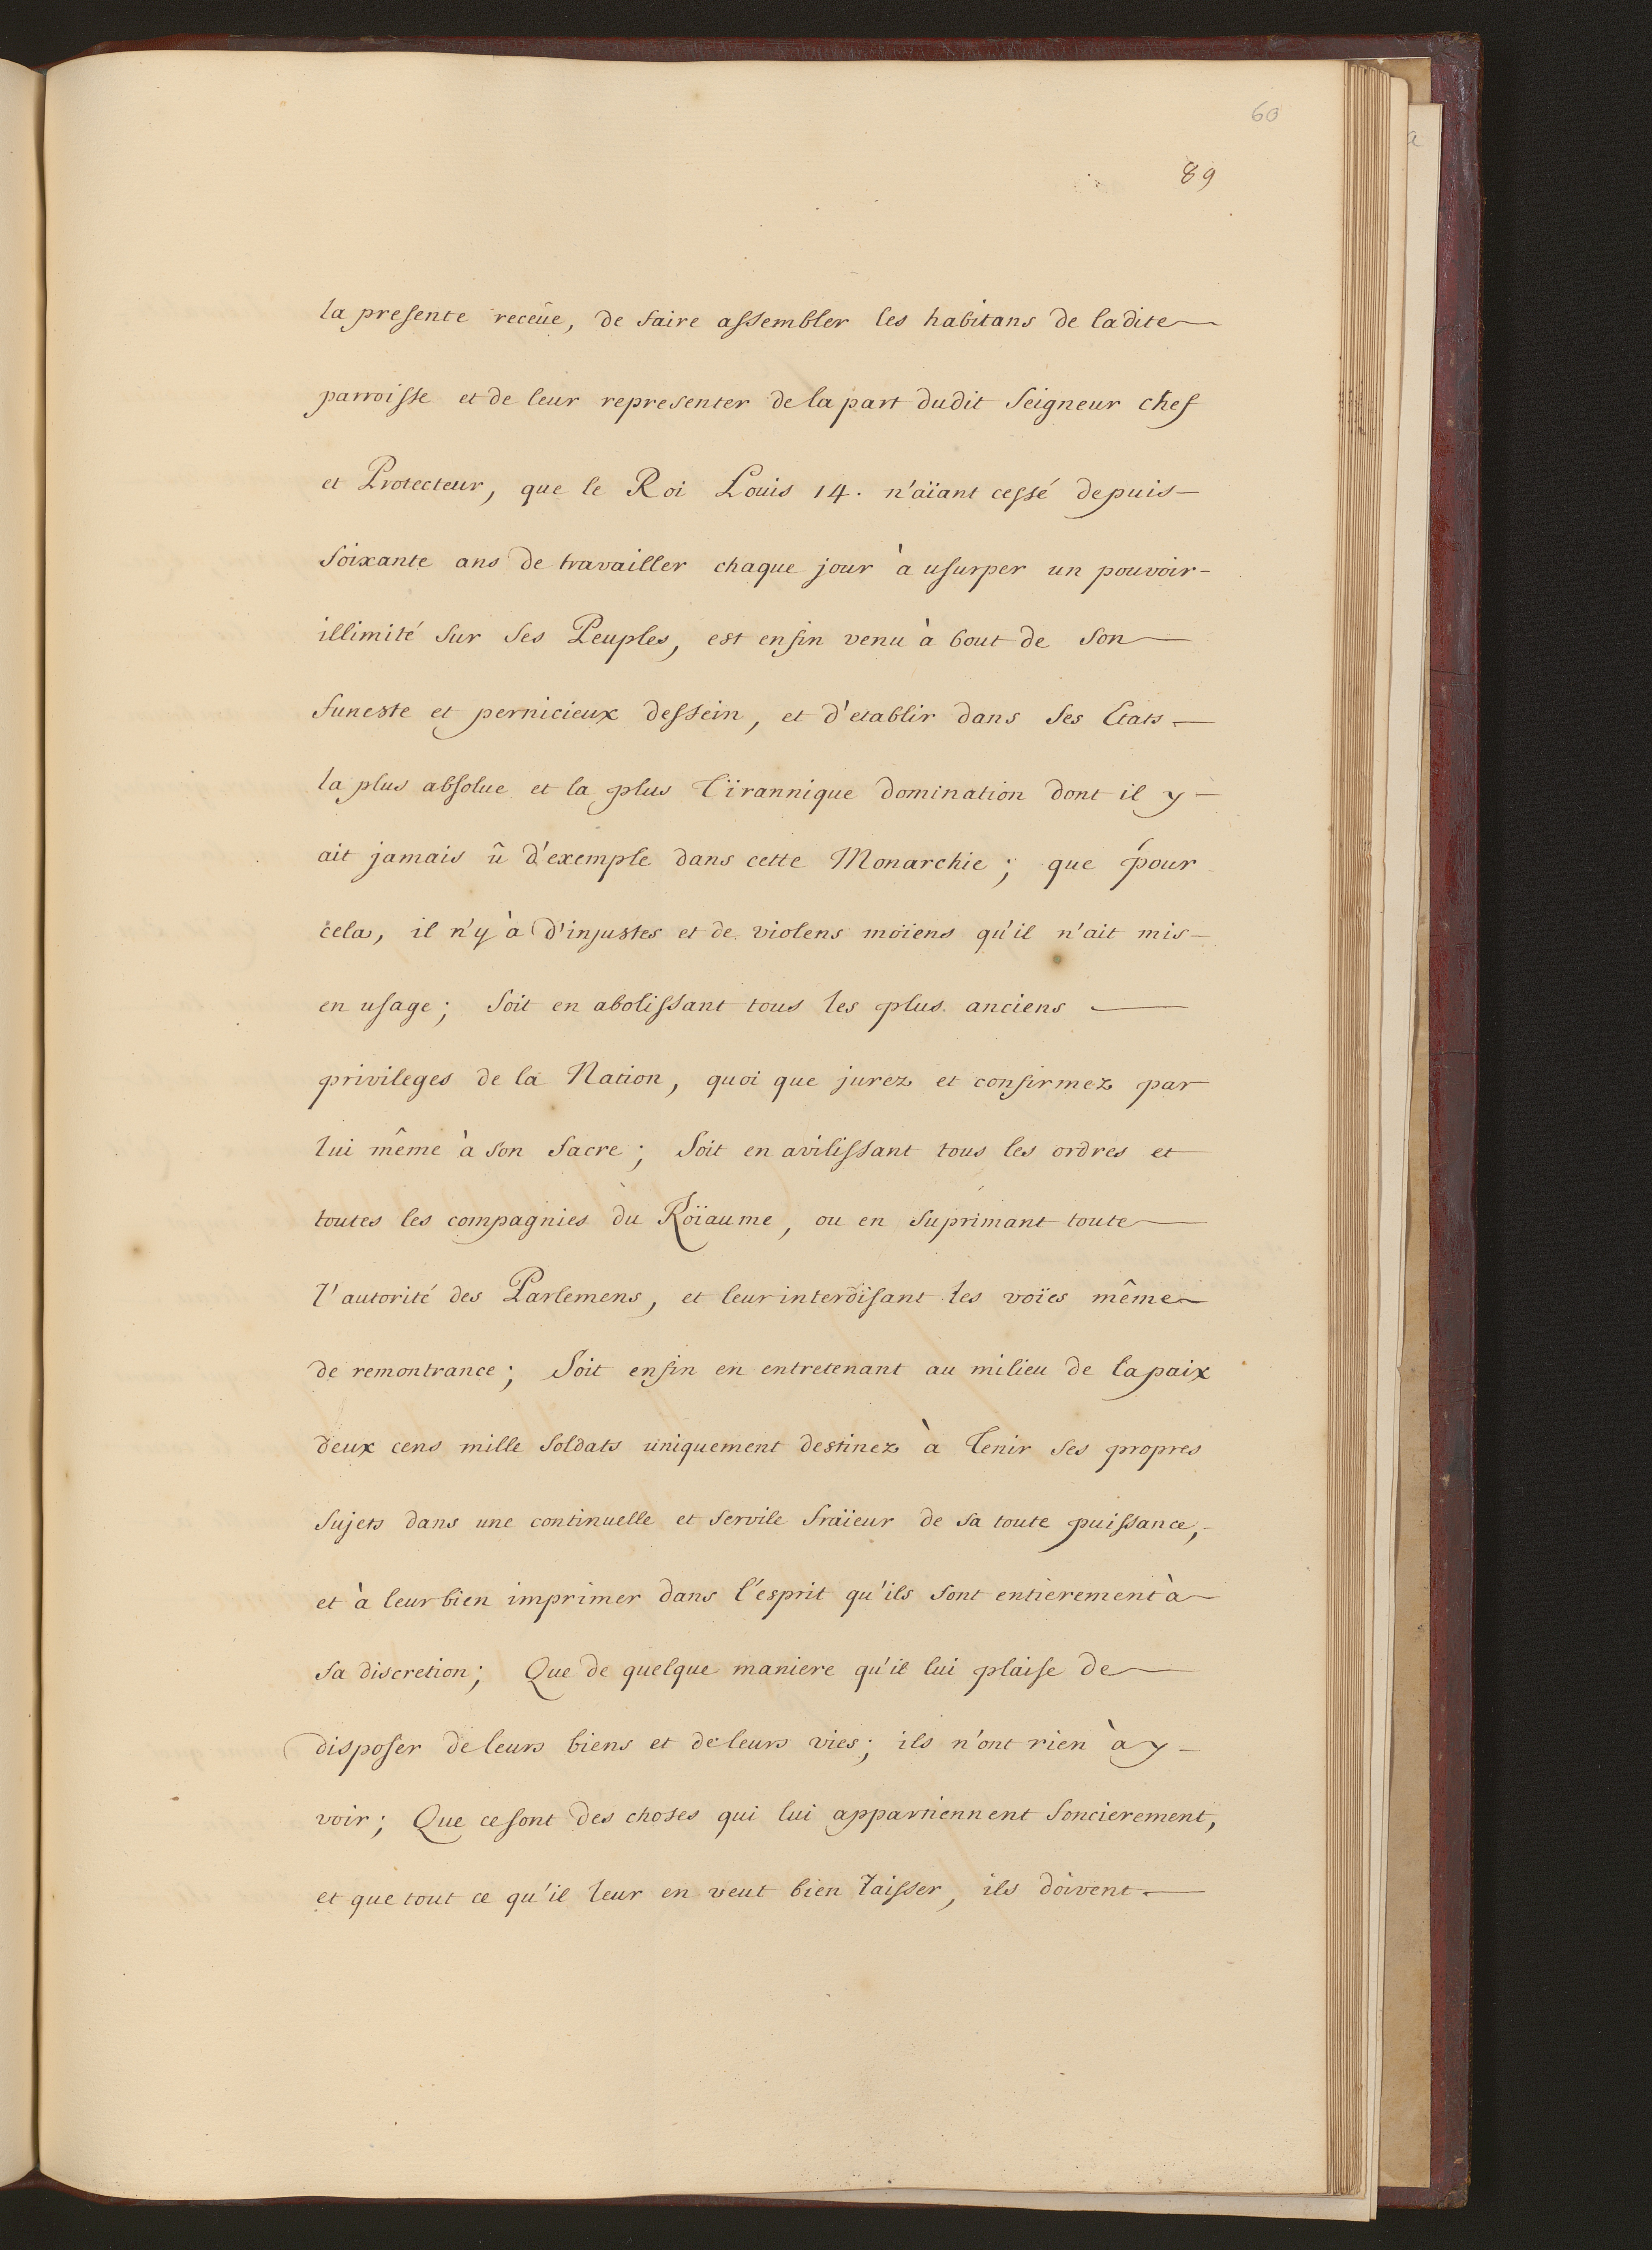 60
89
la presente receüe, de faire assembler les habitans de ladite
parroisse et de leur representer de la part dudit Seigneur chef
et Protecteur, que le Roi Louis 14. n'aïant cessé depuis
soixante ans de travailler chaque jour à usurper un pouvoir
illimité sur ses Peuples, est enfin venu à bout de son
funeste et pernicieux dessein, et d'etablir dans ses Etats
la plus absolue et la plus Tïrannique domination dont il y
ait jamais û d'exemple dans cette Monarchie; que pour
cela, il n'y à d'injustes et de violens moïens qu'il n'ait mis
en usage; soit en abolissant tous les plus anciens
privileges de la Nation, quoi que jurez et confirmez par
lui même à son Sacre; Soit en avilissant tous les ordres et
toutes les compagnies du Roïaume, ou en suprimant toute
l'autorité des Parlemens, et leur interdisant les voïes même
de remontrance; Soit enfin en entretenant au milieu de la paix
deux cens mille soldats uniquement destinez à Tenir ses propres
sujets dans une continuelle et servile fraïeur de sa toute puissance,
et à leur bien imprimer dans l'esprit qu'ils sont entierement à
sa discretion; Que de quelque maniere qu'il lui plaise de
disposer de leurs biens et de leurs vies; ils n'ont rien à y
voir; Que ce sont des choses qui lui appartiennent foncierement,
et que tout ce qu'il leur en veut bien laisser, ils doivent